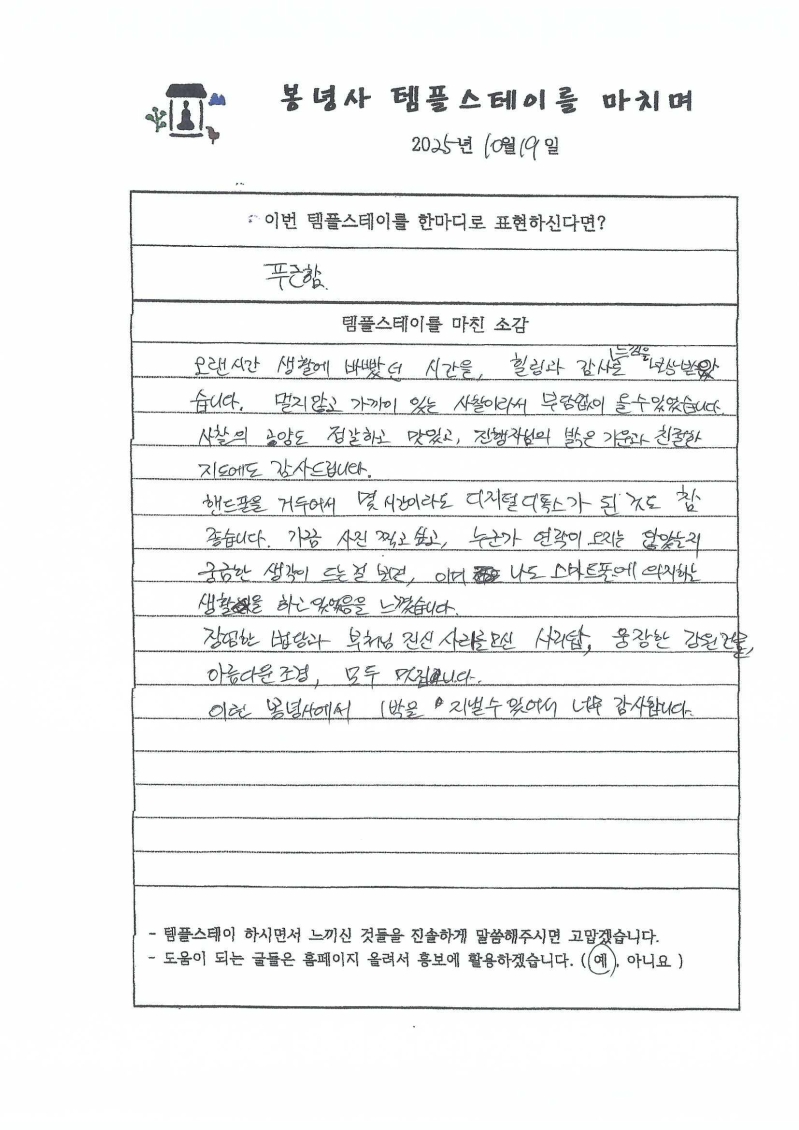 봉녕사 템플스테이를 마치며
2025년 10월 19일
이번 템플스테이를 한마디로 표현하신다면?
푸근함.
템플스테이를 마친 소감
오랜시간 생활에 바빴던 시간을, 힐링과 감사로 느낌을 보상받았
습니다. 멀지않고 가까이 있는 사찰이라서 부담없이 올수있었습니다.
사찰의 공양도 정갈하고 맛있고, 진행자님의 밝은 기운과 친절한
지도에도 감사드립니다.
핸드폰을 거두어서 몇시간이라도 디지털디톡스가 된 것도 참
좋습니다. 가끔 사진 찍고싶고, 누군가 연락이 오지는 않았는지
궁금한 생각이 드는걸 보면, 이미 나도 스마트폰에 의지하는
생활을 하고 있었음을 느꼈습니다.
장엄한 법당과 부처님 진신 사리를 모신 사리탑, 웅장한 강원건물,
아름다운 조경, 모두 멋집니다.
이런 봉녕사에서 1박을 지낼수 있어서 너무 감사합니다.
- 템플스테이 하시면서 느끼신 것들을 진솔하게 말씀해주시면 고맙겠습니다.
- 도움이 되는 글들은 홈페이지 올려서 홍보에 활용하겠습니다. ( 예 , 아니요 )